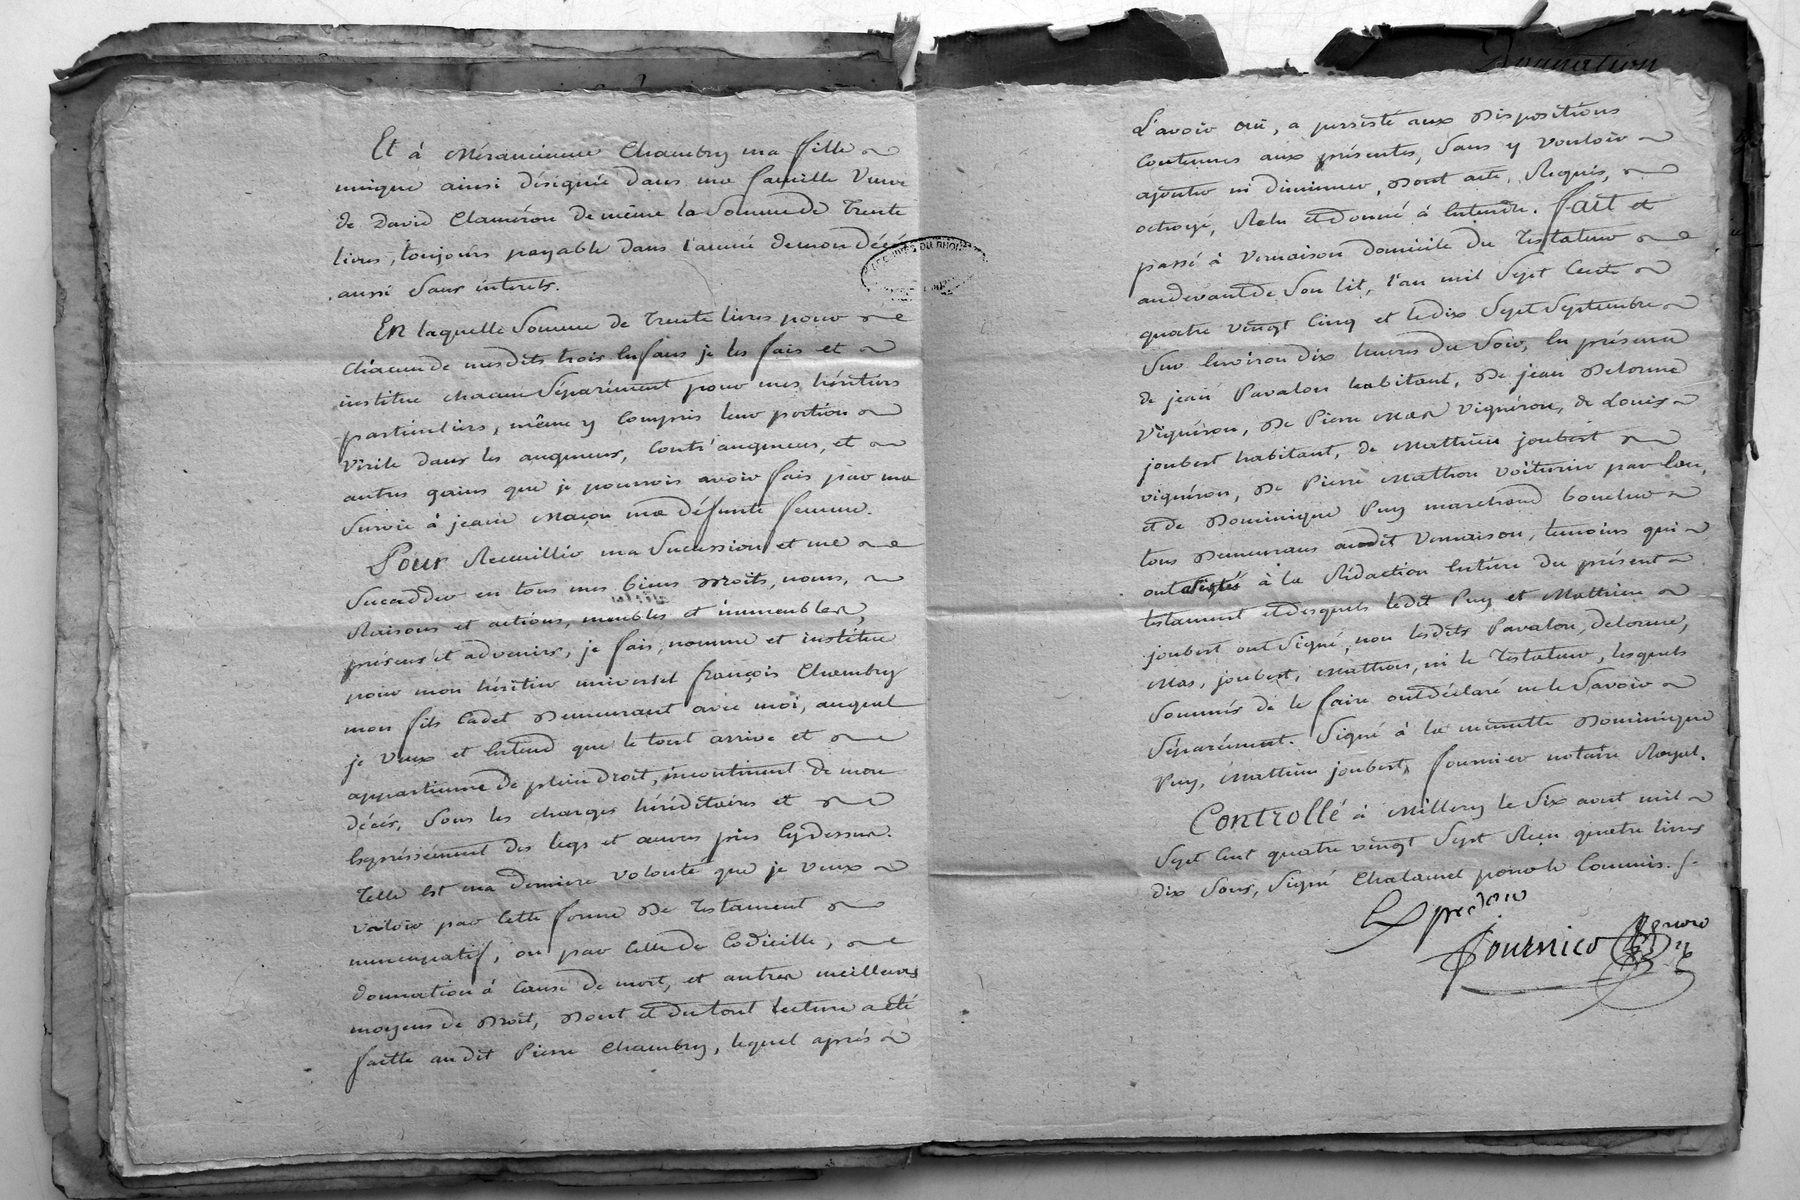 Donnation
Et à Méraucienne Chambry ma fille
unique ainsi désignée dans ma famille Veuve
de David Claméron de même la Somme de Trente
livres, toujours payable dans l'année de mon décès
aussi Sans interets.
En laquelle Somme de Trente livres pour
chacun de mesdits trois Enfans je les fais et
institue chacun Séparément pour mes héritiers
particuliers, même y Compris leur portion
Virile dans les augmens, Contr'augmens, et
autres gains que je pourrois avoir fais par ma
Survie à jeanne Maçon ma défunte femme.
Pour Recueillir ma Succession et me
Succedder en tous mes biens Droits, noms,
Raisons et actions, meubles et immeubles,
présens et advenirs, je fais, nomme et institue
pour mon héritier universel françois Chambry
mon fils Cadet Demeurant avec moi, auquel
je Veux et Entend que le tout arrive et
appartienne de plein Droit, incontinent de mon
décès, Sous les charges héréditaires et
Expressément des legs et œuvres pies Cy dessus.
Telle Est ma dernière Volonté que je Veux
valoir par Cette forme De Testament
nuncupatif, ou par Celle de Codicille,
donnation à Cause De mort, et autres meilleurs
moyens de Droit, Dont et du tout Lecture a été
faitte audit Pierre Chambry, lequel après
L'avoir ouï, a persisté aux Dispositions
Contenues aux présentes, Sans y Vouloir
ajouter ni Diminuer, Dont acte, Requis,
octroyé, Relu et donné à Entendre. fait et
passé à Vernaison domicile du Testateur
audevant de Son lit, l'an mil Sept Cents
quatre Vingt Cinq et le dix Sept Septembre
Sur Environ dix heures du Soir, En présence
de jean Pavalon habitant, De jean Delorme
Vigneron, De Pierre Mas Vigneron, de Louis
joubert habitant, de Mathieu joubert
vigneron, De Pierre Mathon Voiturier par Eau,
et de Dominique Puy marchand boucher
tous Demeurans audit Vernaison, temoins qui
ont assistés à la Rédaction Entière Du présent
testament et desquels ledit Puy et Mathieu
joubert ont Signé, non lesdits Pavalon, delorme,
Mas, joubert, Mathon, ni le Testateur, lesquels
Sommés de le faire ont déclaré ne le Savoir
Séparément. Signé à la minutte Dominique
Puy, Mathieu joubert, fournier notaire Royal.
Controllé à Millery le Six aout mil
Sept Cent quatre vingt Sept Reçu quatre livres
dix Sous, Signé Chalamel pour le Commis.
Expedion
Fournier